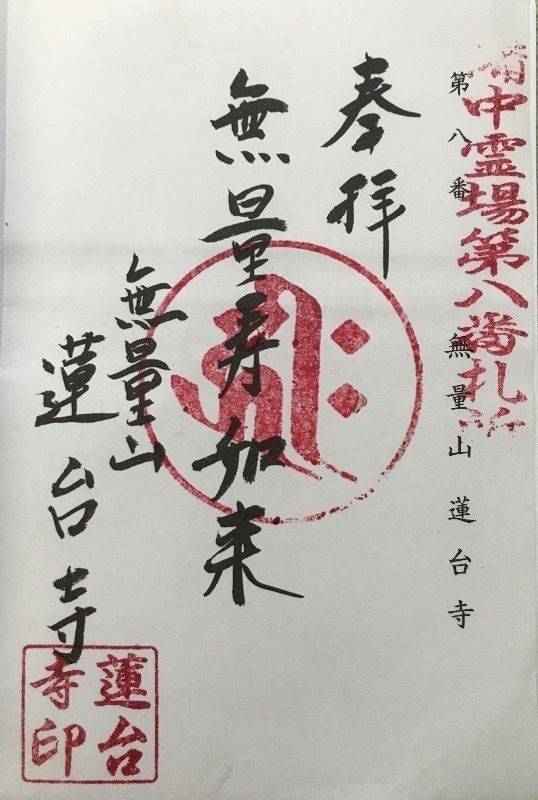 備中霊場第八番札所
第八番 無量山 蓮台寺
奉拝
無量寿如来
無量山
蓮台寺
蓮台
寺印